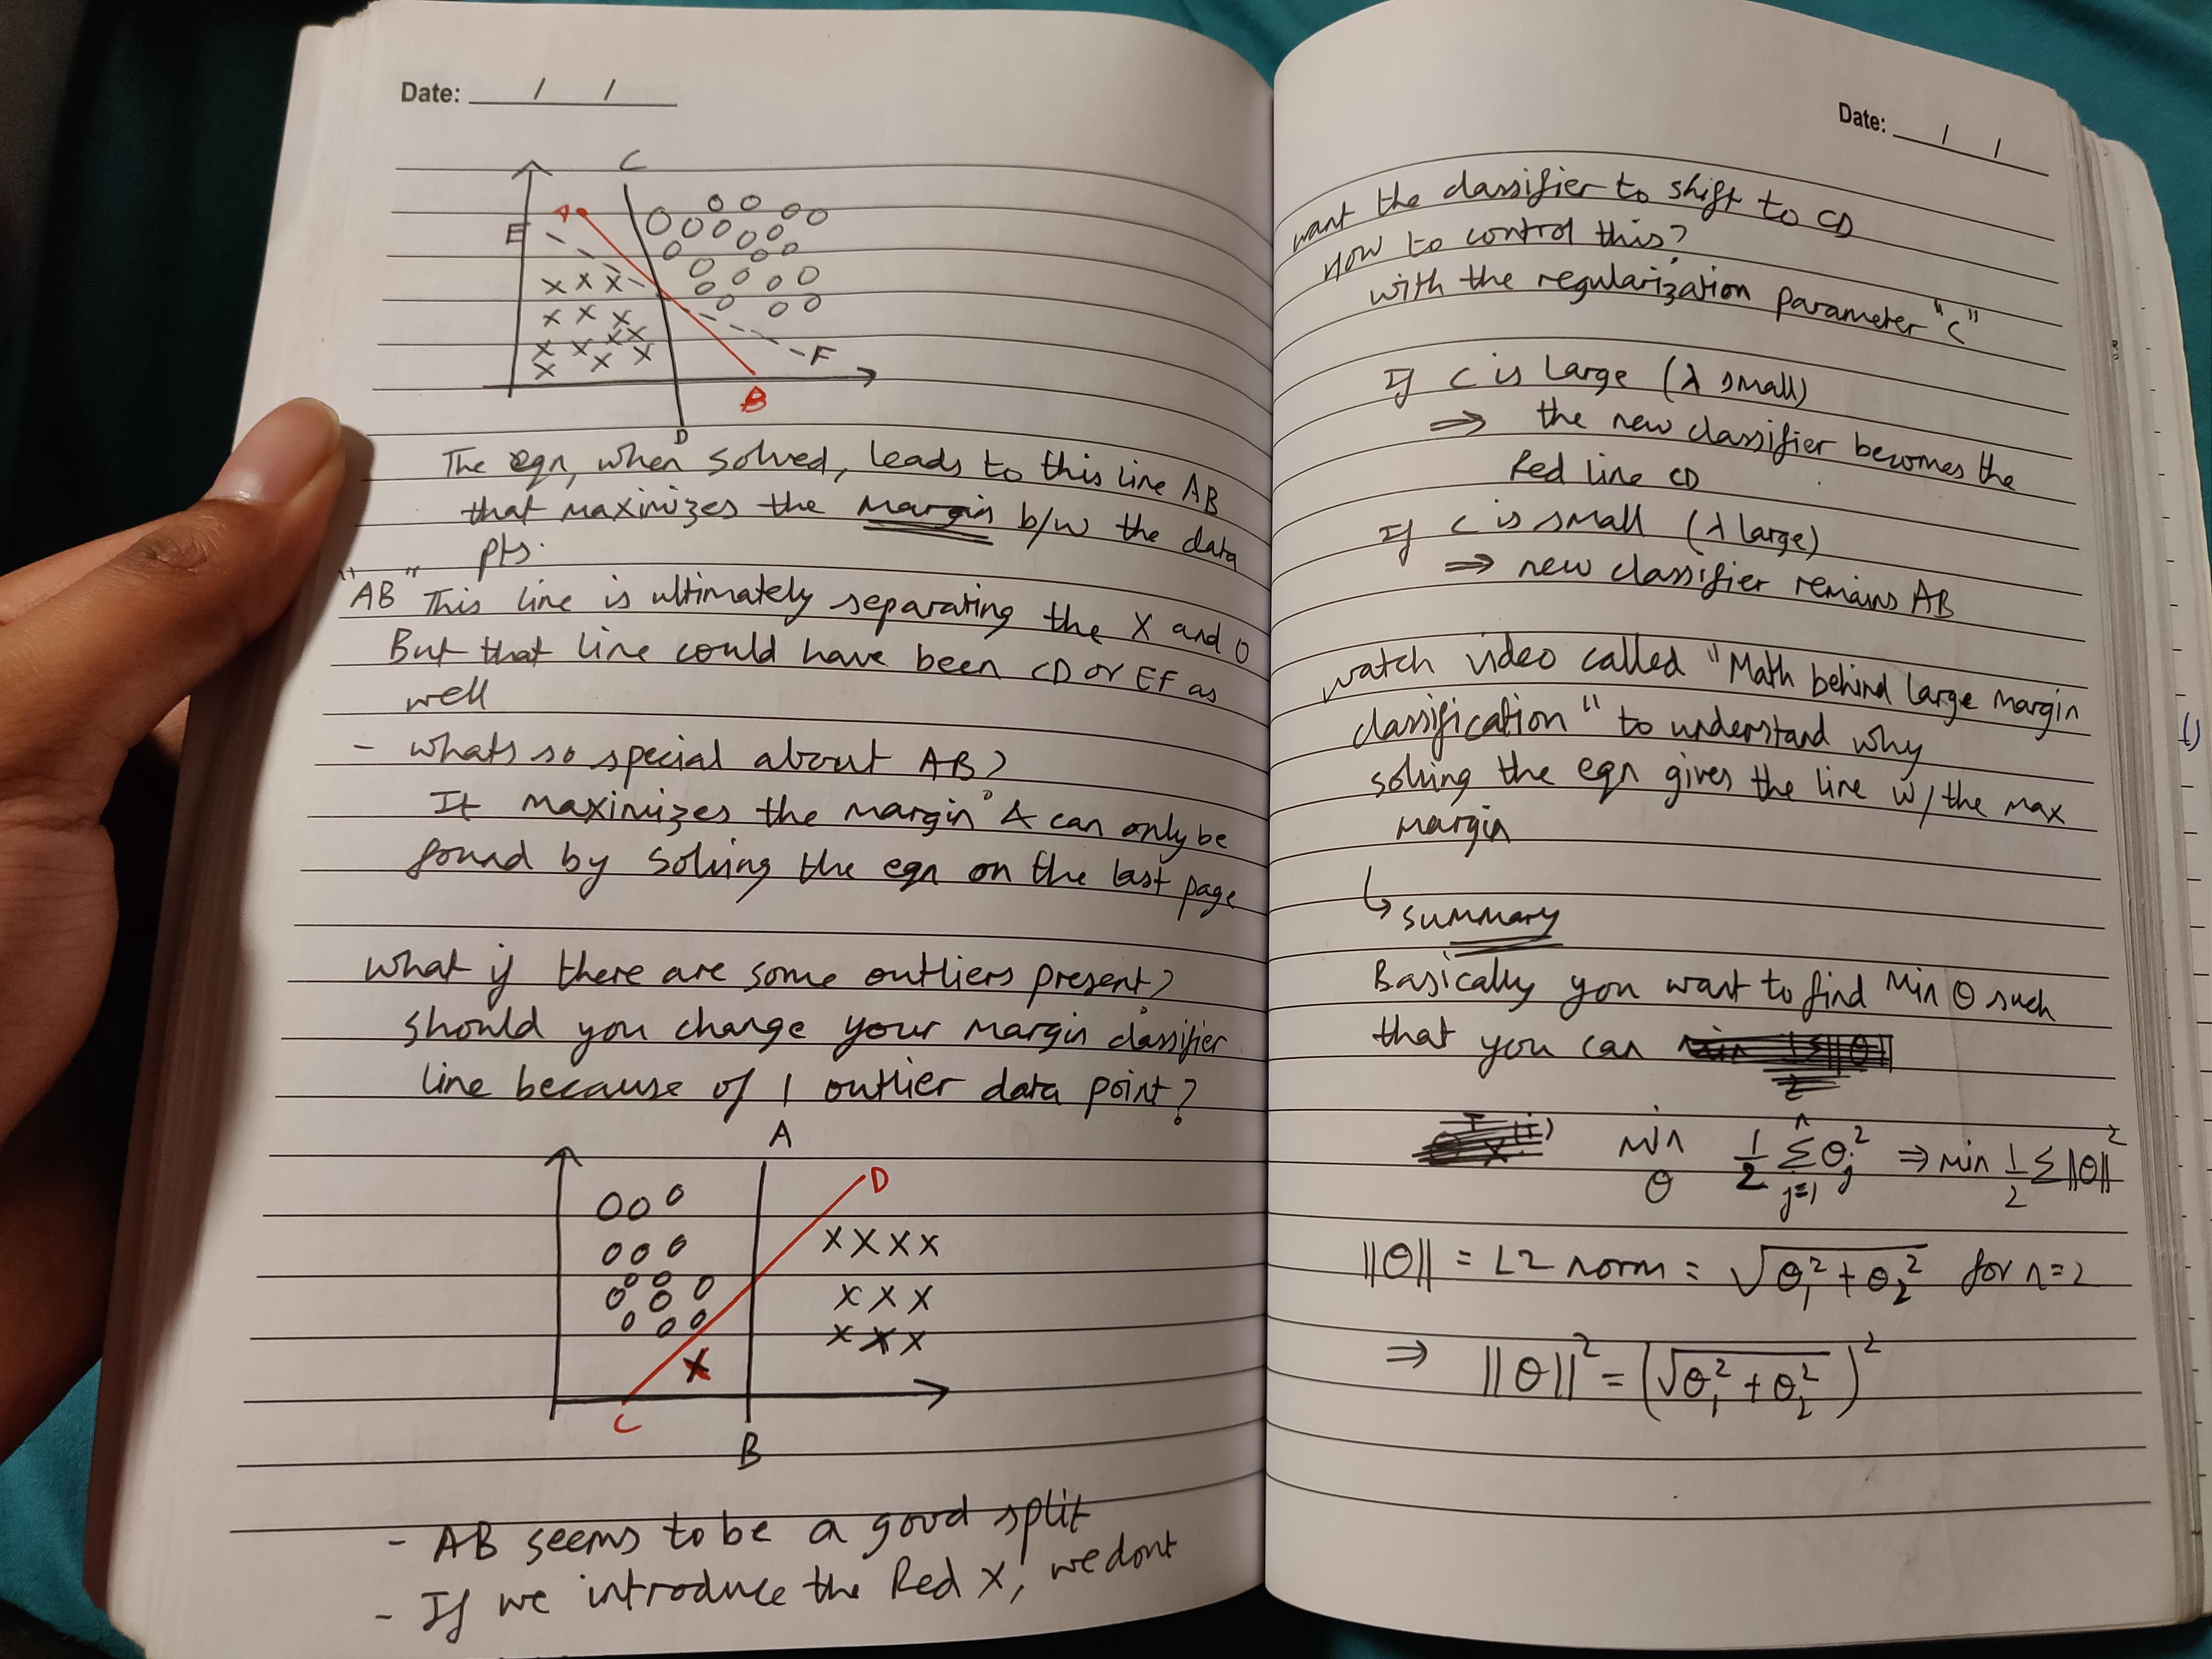 Date: / /
C
A
E
F
B
D
The eqn, when solved, leads to this line AB
that maximizes the margin b/w the data
pts.
"AB" This line is ultimately separating the X and O
But that line could have been CD or EF as
well
- whats so special about AB?
It maximizes the margin & can only be
found by solving the eqn on the last page
what if there are some outliers present?
should you change your margin classifier
line because of 1 outlier data point?
A
D
O O O X X X X
O O O
X X X
X X X
X
C
B
- AB seems to be a good split
- If we introduce the Red X, we dont
Date: / /
want the classifier to shift to CD
How to control this?
with the regularization parameter "C"
If C is large (λ small)
⇒ the new classifier becomes the
Red line CD
If C is small (λ large)
⇒ new classifier remains AB
watch video called "Math behind large margin
classification" to understand why
solving the eqn gives the line w/ the max
margin
↳ summary
Basically you want to find Min θ such
that you can
min θ 1/2 Σ_{j=1}^{n} θ_j^2 ⇒ min 1/2 Σ ||θ||^2
||θ|| = L2 norm = √(θ_1^2 + θ_2^2) for n=2
⇒ ||θ||^2 = (√(θ_1^2 + θ_2^2))^2